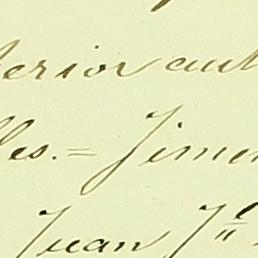 erior aut
les.= Jimen
Juan J